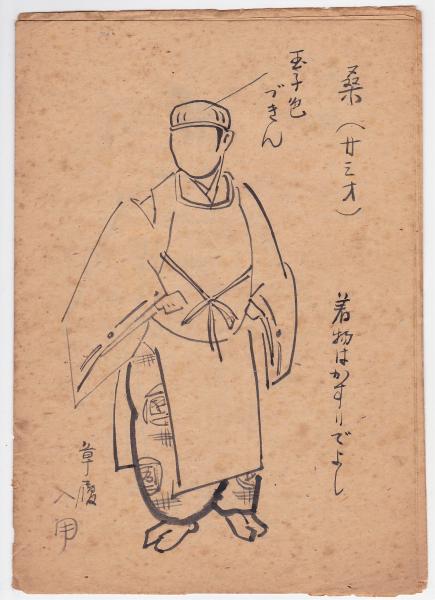 桑（廿三才）
玉子色
づきん
着物はかすりでよし
草履
入用